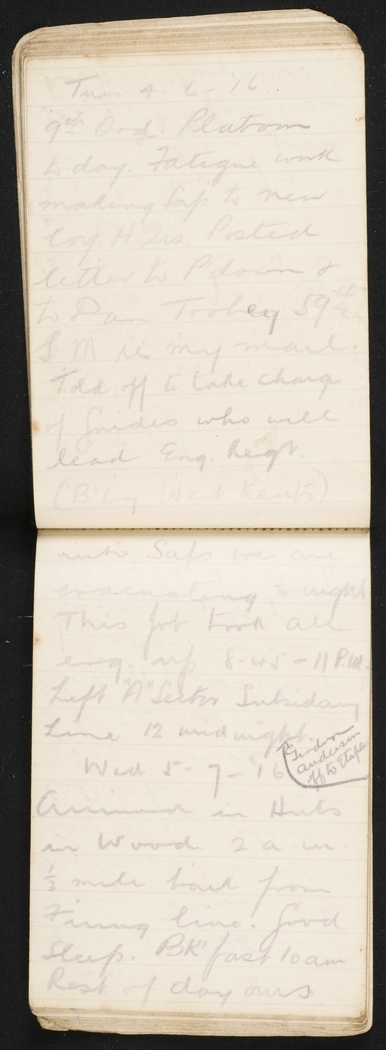 Tues 4-6-'16
9th Ord. Platoon
to day. Fatigue work
making Sap to new
Coy. H Qrs. Posted
letter to P down &
to Dan Toohey 59th
S M is my mail.
Told off to take charge
of guides who will
lead Eng. Regt.
(B'Coy West Kents)
into Saps we are
evacuating to-night
This job took all
eng. up 8-45-11 P.M.
Left "A" Sector Subsidary
Line 12 midnight.
Wed 5-7-'16
Gordon
Anderson
off to Etaps
Arrived in Huts
in Wood 2 a.m.
½ mile back from
Firing line. Good
Sleep. BK'fast 10 am
Rest of day ours